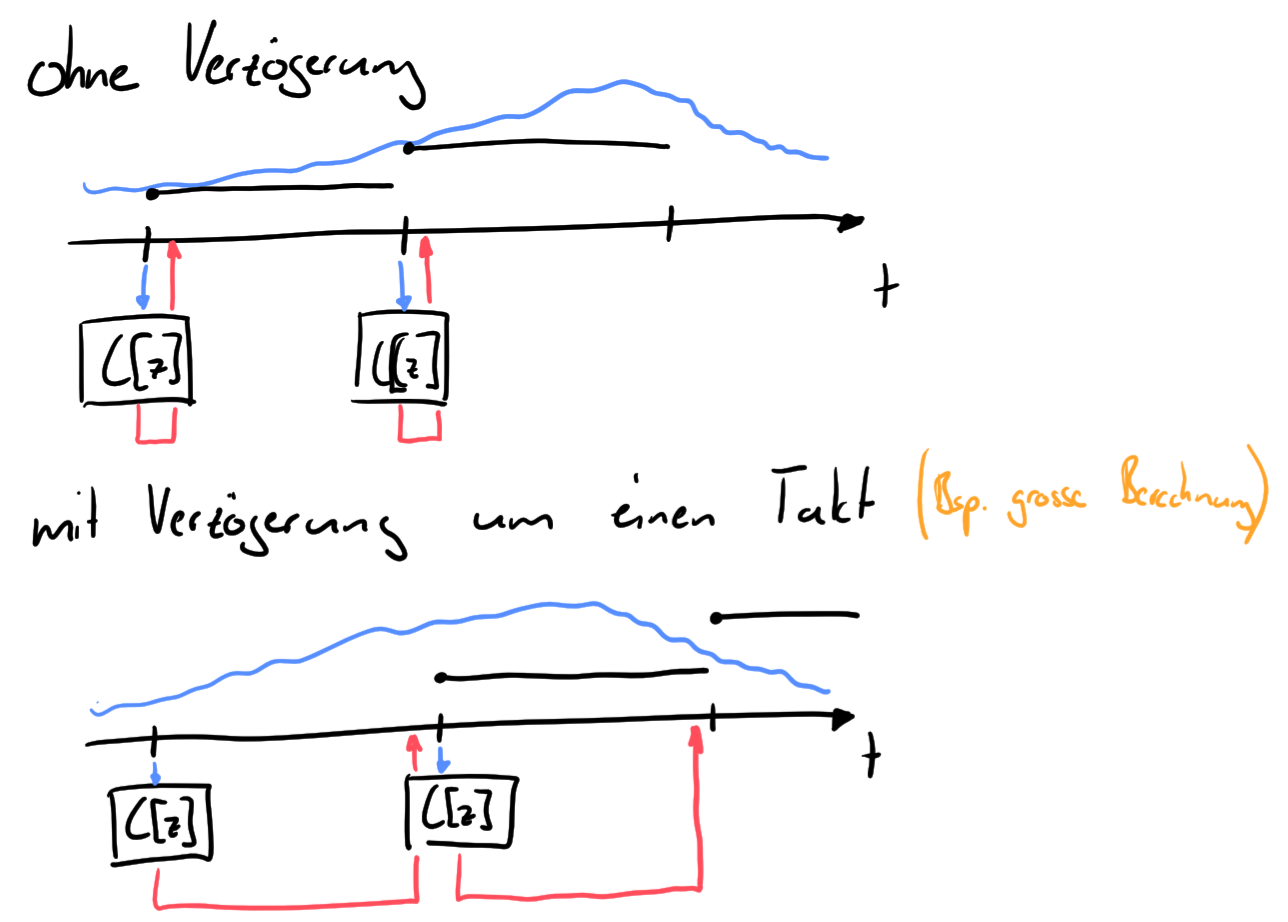 ohne Verzögerung
t
C[z] C[z]
mit Verzögerung um einen Takt (Bsp. grosse Berechnung)
t
C[z] C[z]